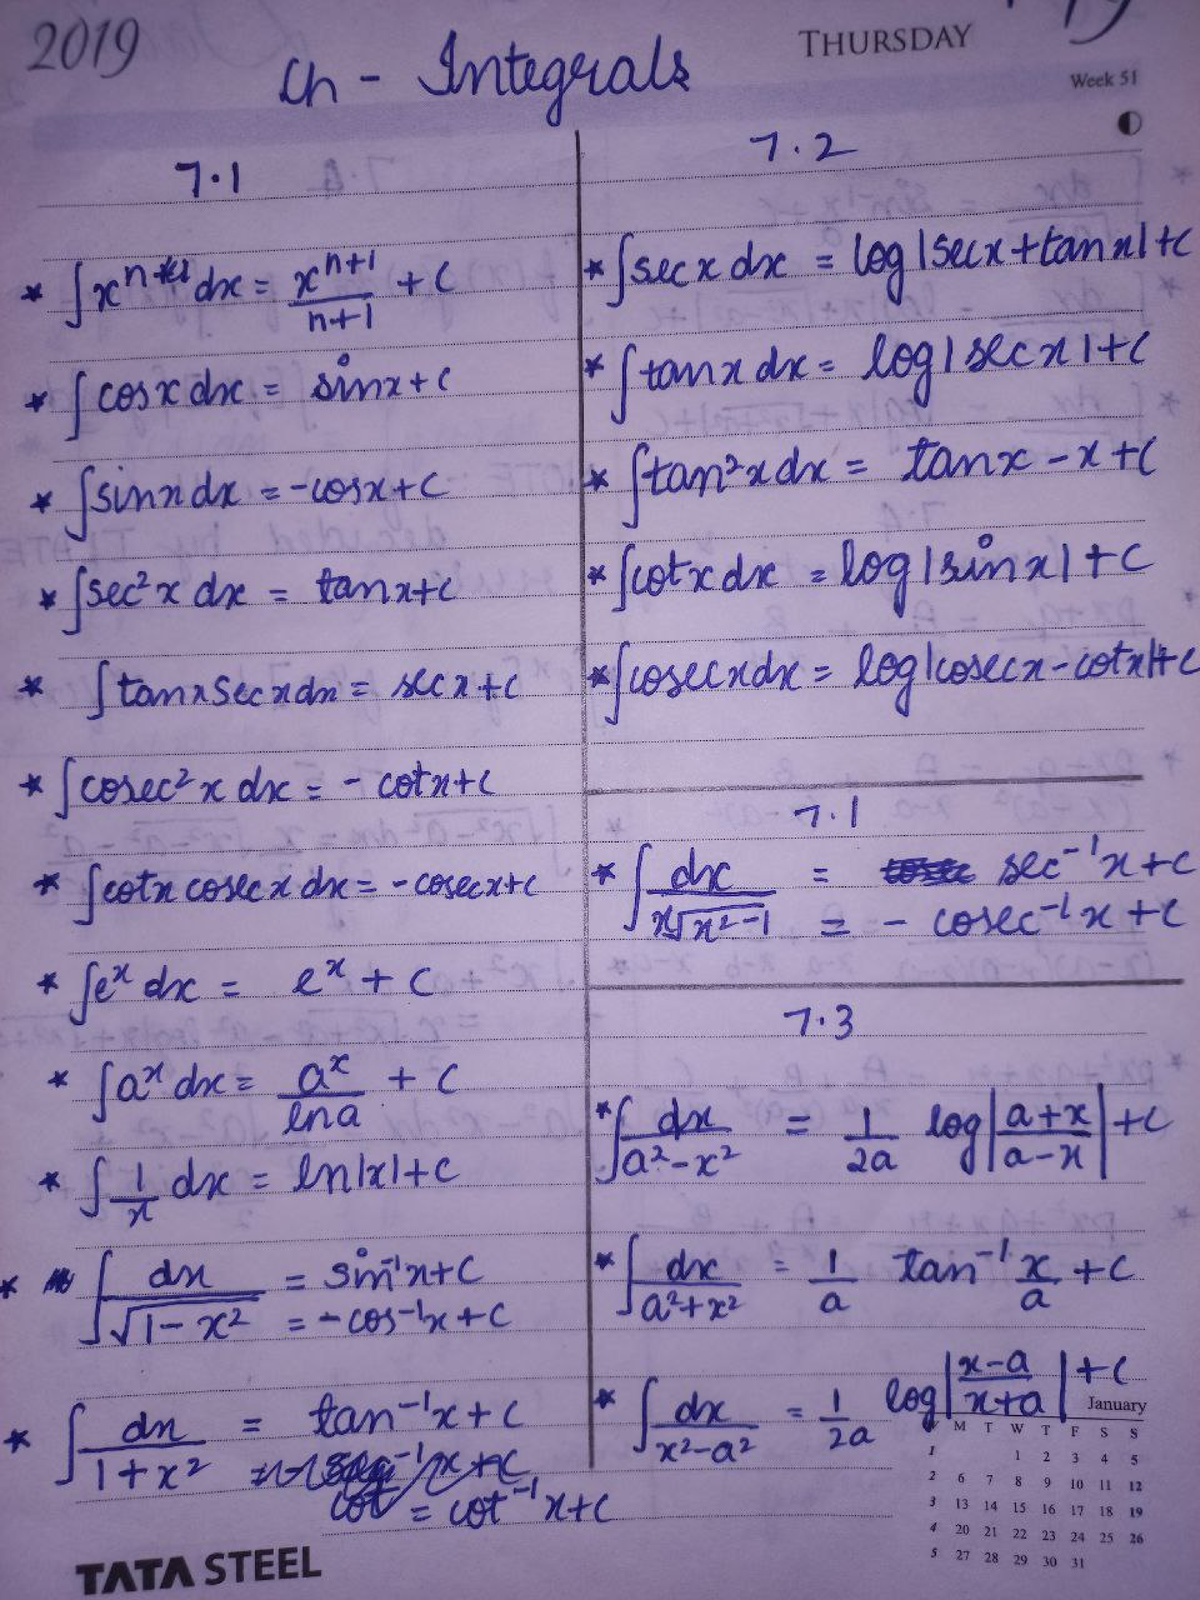 2019
THURSDAY
Week 51
Ch - Integrals
7.1
* ∫xⁿ dx = xⁿ⁺¹/n+1 + C
* ∫cosx dx = sinx + C
* ∫sinx dx = -cosx + C
* ∫sec²x dx = tanx + C
* ∫tanx secx dx = secx + C
* ∫cosec²x dx = - cotx + C
* ∫cotx cosecx dx = -cosecx + C
* ∫eˣ dx = eˣ + C
* ∫aˣ dx = aˣ/ln a + C
* ∫1/x dx = ln|x| + C
* ∫dx/√(1-x²) = sin⁻¹x + C
= -cos⁻¹x + C
* ∫dx/1+x² = tan⁻¹x + C
= cot⁻¹x + C
7.2
* ∫secx dx = log|secx + tanx| + C
* ∫tanx dx = log|secx| + C
* ∫tan²x dx = tanx - x + C
* ∫cotx dx = log|sinx| + C
* ∫cosecx dx = log|cosecx - cotx| + C
7.1
* ∫dx/x√(x²-1) = sec⁻¹x + C
= - cosec⁻¹x + C
7.3
* ∫dx/a²-x² = 1/2a log|a+x/a-x| + C
* ∫dx/a²+x² = 1/a tan⁻¹ x/a + C
* ∫dx/x²-a² = 1/2a log|x-a/x+a| + C
January
M T W T F S S
1 1 2 3 4 5
2 6 7 8 9 10 11 12
3 13 14 15 16 17 18 19
4 20 21 22 23 24 25 26
5 27 28 29 30 31
TATA STEEL